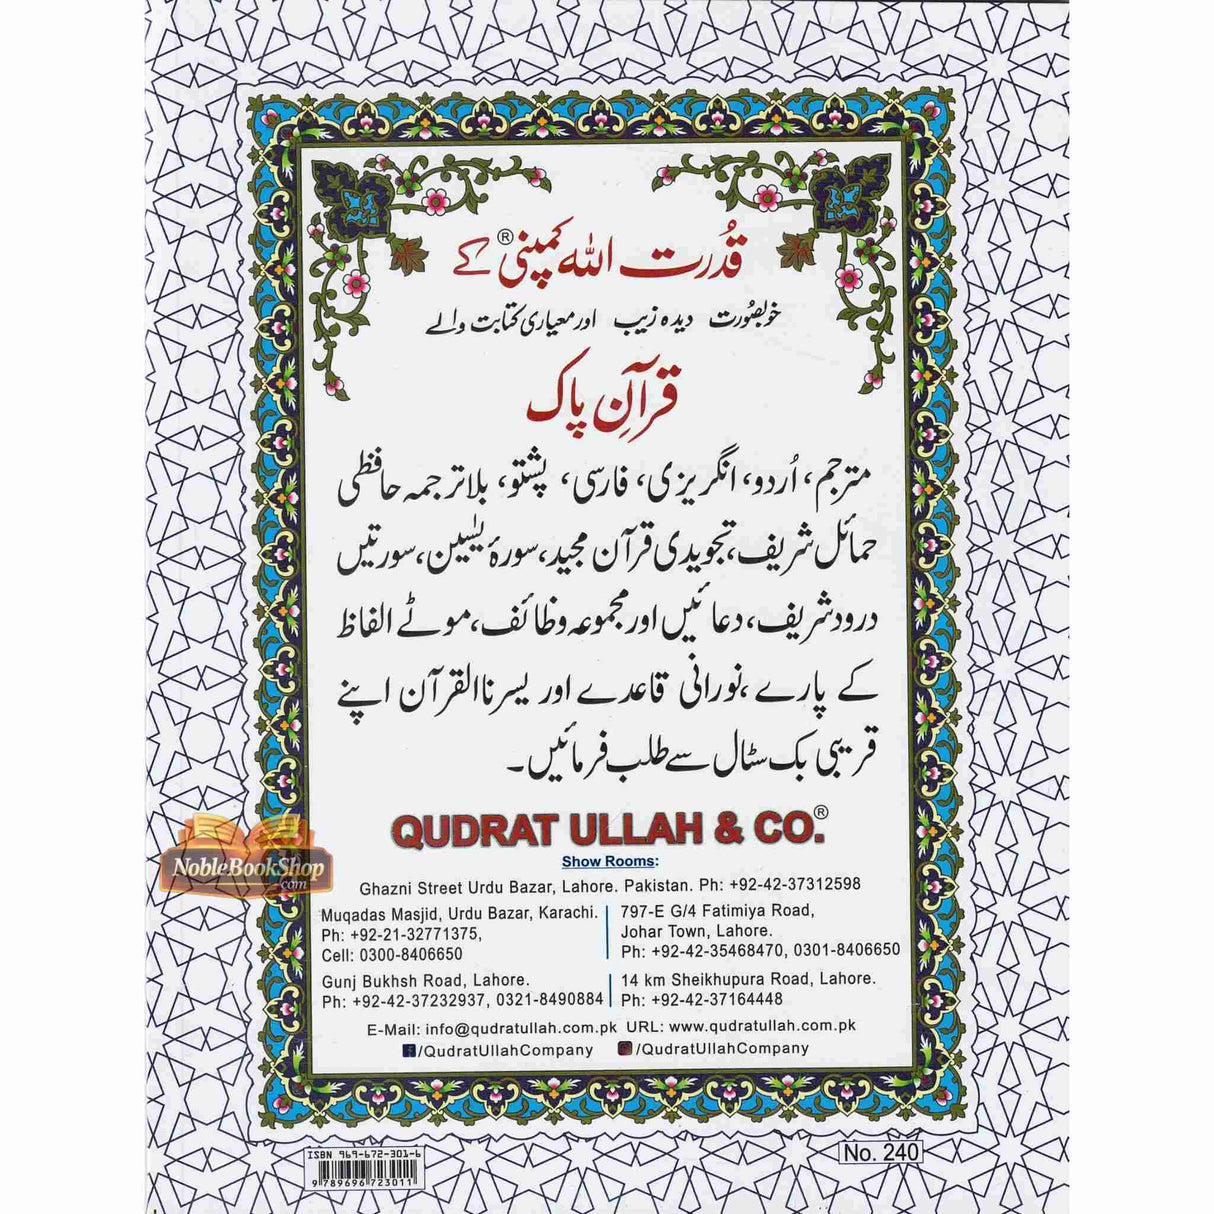 قُدرت اللہ کمپنی® کے
خوبصُورت دیدہ زیب اور معیاری کتابت والے
قرآنِ پاک
مترجم، اُردو، انگریزی، فارسی، پشتو، بلاترجمہ حافظی
حمائل شریف، تجویدی قرآن مجید، سورۂ یٰسین، سورتیں
درود شریف، دعائیں اور مجموعہ وظائف، موٹے الفاظ
کے پارے، نورانی قاعدے اور یسرنا القرآن اپنے
قریبی بک سٹال سے طلب فرمائیں۔
QUDRAT ULLAH & CO.®
Show Rooms:
Ghazni Street Urdu Bazar, Lahore. Pakistan. Ph: +92-42-37312598
Muqadas Masjid, Urdu Bazar, Karachi.
Ph: +92-21-32771375,
Cell: 0300-8406650
797-E G/4 Fatimiya Road,
Johar Town, Lahore.
Ph: +92-42-35468470, 0301-8406650
Gunj Bukhsh Road, Lahore.
Ph: +92-42-37232937, 0321-8490884
14 km Sheikhupura Road, Lahore.
Ph: +92-42-37164448
E-Mail: info@qudratullah.com.pk URL: www.qudratullah.com.pk
/QudratUllahCompany /QudratUllahCompany
NobleBookShop
.com
ISBN 969-672-301-6
9 789696 723011
No. 240